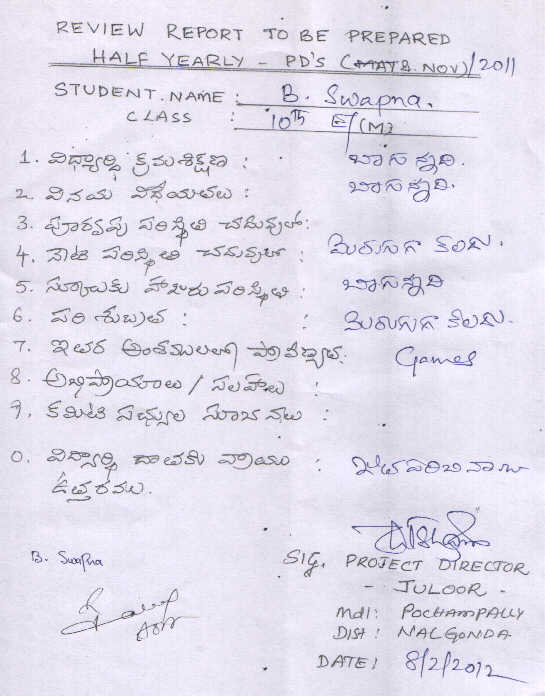 REVIEW REPORT TO BE PREPARED
HALF YEARLY - PD'S (MAY & NOV)/2011
STUDENT.NAME : B. Swapna.
CLASS : 10th E/(M)
1. విద్యార్థి క్రమశిక్షణ : బాగున్నది.
2. వినయ విధేయతలు : బాగున్నది.
3. పూర్వపు పరిస్థితి చదువులో :
4. నేటి పరిస్థితి చదువులో : మెరుగుగా కలదు.
5. స్కూలుకు హాజరు పరిస్థితి : బాగున్నది
6. పరిశుభ్రత : : మెరుగుగా కలదు.
7. ఇతర అంశములలో ప్రావీణ్యత : Games
8. అభిప్రాయాలు / సలహాలు :
9. కమిటి సభ్యుల సూచనలు :
0. విద్యార్థి దాతకు వ్రాయు :
ఉత్తరములు.
B. Swapna
SIG, PROJECT DIRECTOR
- JULOOR -
Mdl: POCHAMPALLY
DISt: NALGONDA
DATE: 8/2/2012